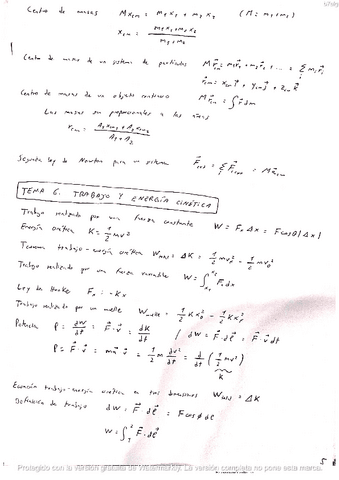 Centro de masas M x_cm = m₁x₁ + m₂x₂ (M = m₁+m₂)
x_cm = (m₁x₁ + m₂x₂)/(m₁ + m₂)
Centro de masas de un sistema de partículas M r⃗_cm = m₁r⃗₁ + m₂r⃗₂ + ... = Σ mᵢr⃗ᵢ
r⃗_cm = x_cm î + y_cm ĵ + z_cm k̂
Centro de masas de un objeto continuo M r⃗_cm = ∫ r⃗ dm
Las masas son proporcionales a las áreas
Segunda ley de Newton para un sistema
TEMA 6. TRABAJO Y ENERGÍA CINÉTICA
Trabajo realizado por una fuerza constante W = Fₓ Δx = F cosθ |Δx|
Energía cinética K = 1/2 mv²
Teorema trabajo-energía cinética = ΔK = 1/2 mv_f² - 1/2 mv_i²
Trabajo realizado por una fuerza variable W = ∫ Fₓ dx
Ley de Hooke Fₓ = -Kx
Trabajo realizado por un muelle
Potencia P = dW/dt = F⃗ · v⃗ = dK/dt / dW = F⃗ · dℓ⃗ = F⃗ · v⃗ dt
P = F⃗ · v⃗ = ma⃗ v⃗ = 1/2 m dv²/dt = d/dt (1/2 mv²)
K
Energía trabajo-energía cinética en tres dimensiones = ΔK
Definición de trabajo dW = F⃗ · dℓ⃗ = F cosφ dℓ
W = ∫₁² F⃗ · dℓ⃗
5
Protegido con la versión gratuita de Watermarkly. La versión completa no pone esta marca.